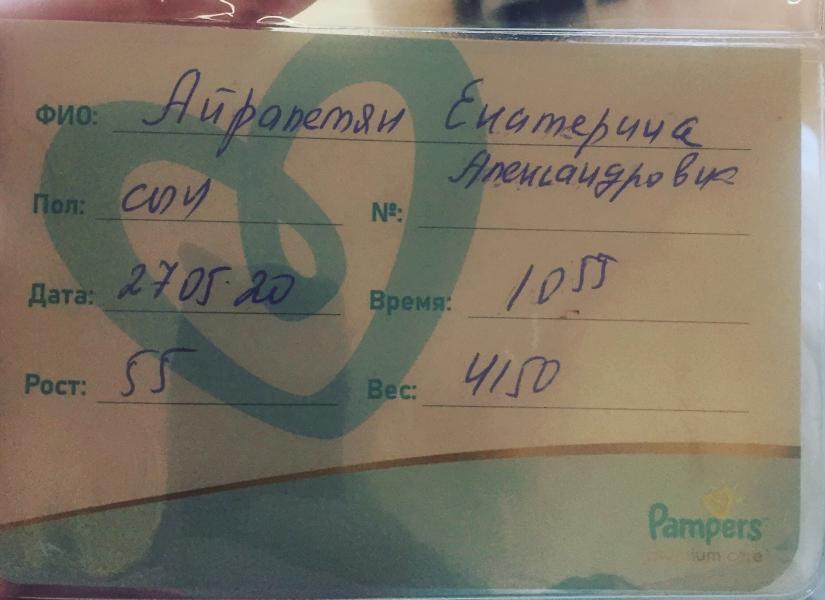 ФИО: Айрапетян Екатерина
Александровна
Пол: сын №:
Дата: 27 05. 20 Время: 10 55
Рост: 55 Вес: 4150
Pampers
premium care